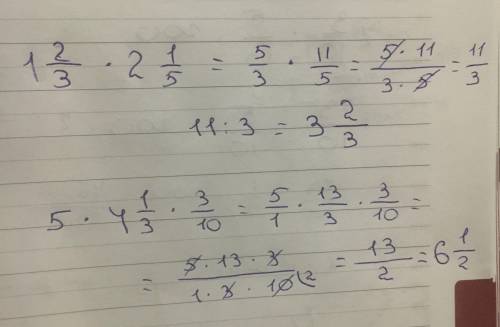 1 2/3 · 2 1/5 = 5/3 · 11/5 = 5·11/3·5 = 11/3
11 : 3 = 3 2/3
5 · 4 1/3 · 3/10 = 5/1 · 13/3 · 3/10 =
= 5·13·3/1·3·10 2 = 13/2 = 6 1/2